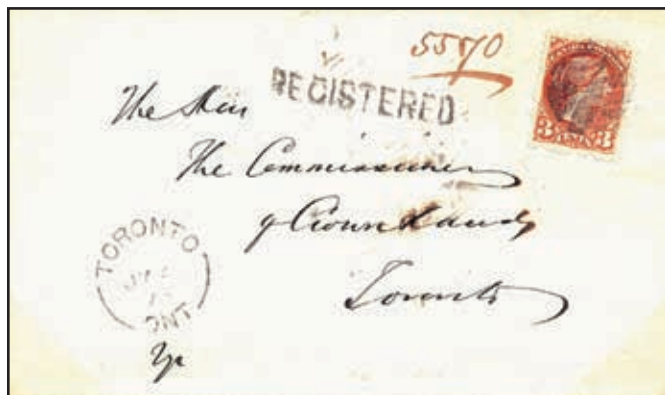 5570
REGISTERED
The Hon
The Commissioner
of Crown Lands
Toronto
TORONTO
ONT
3 CENTS 3